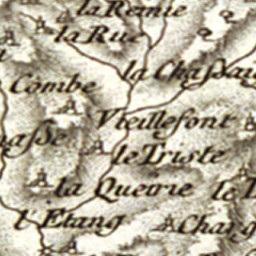 la Remie
la Rue
la Chassai
Combe
Vieillefont
asse
le Triste
la Queirie
le
l'Etang
Chang